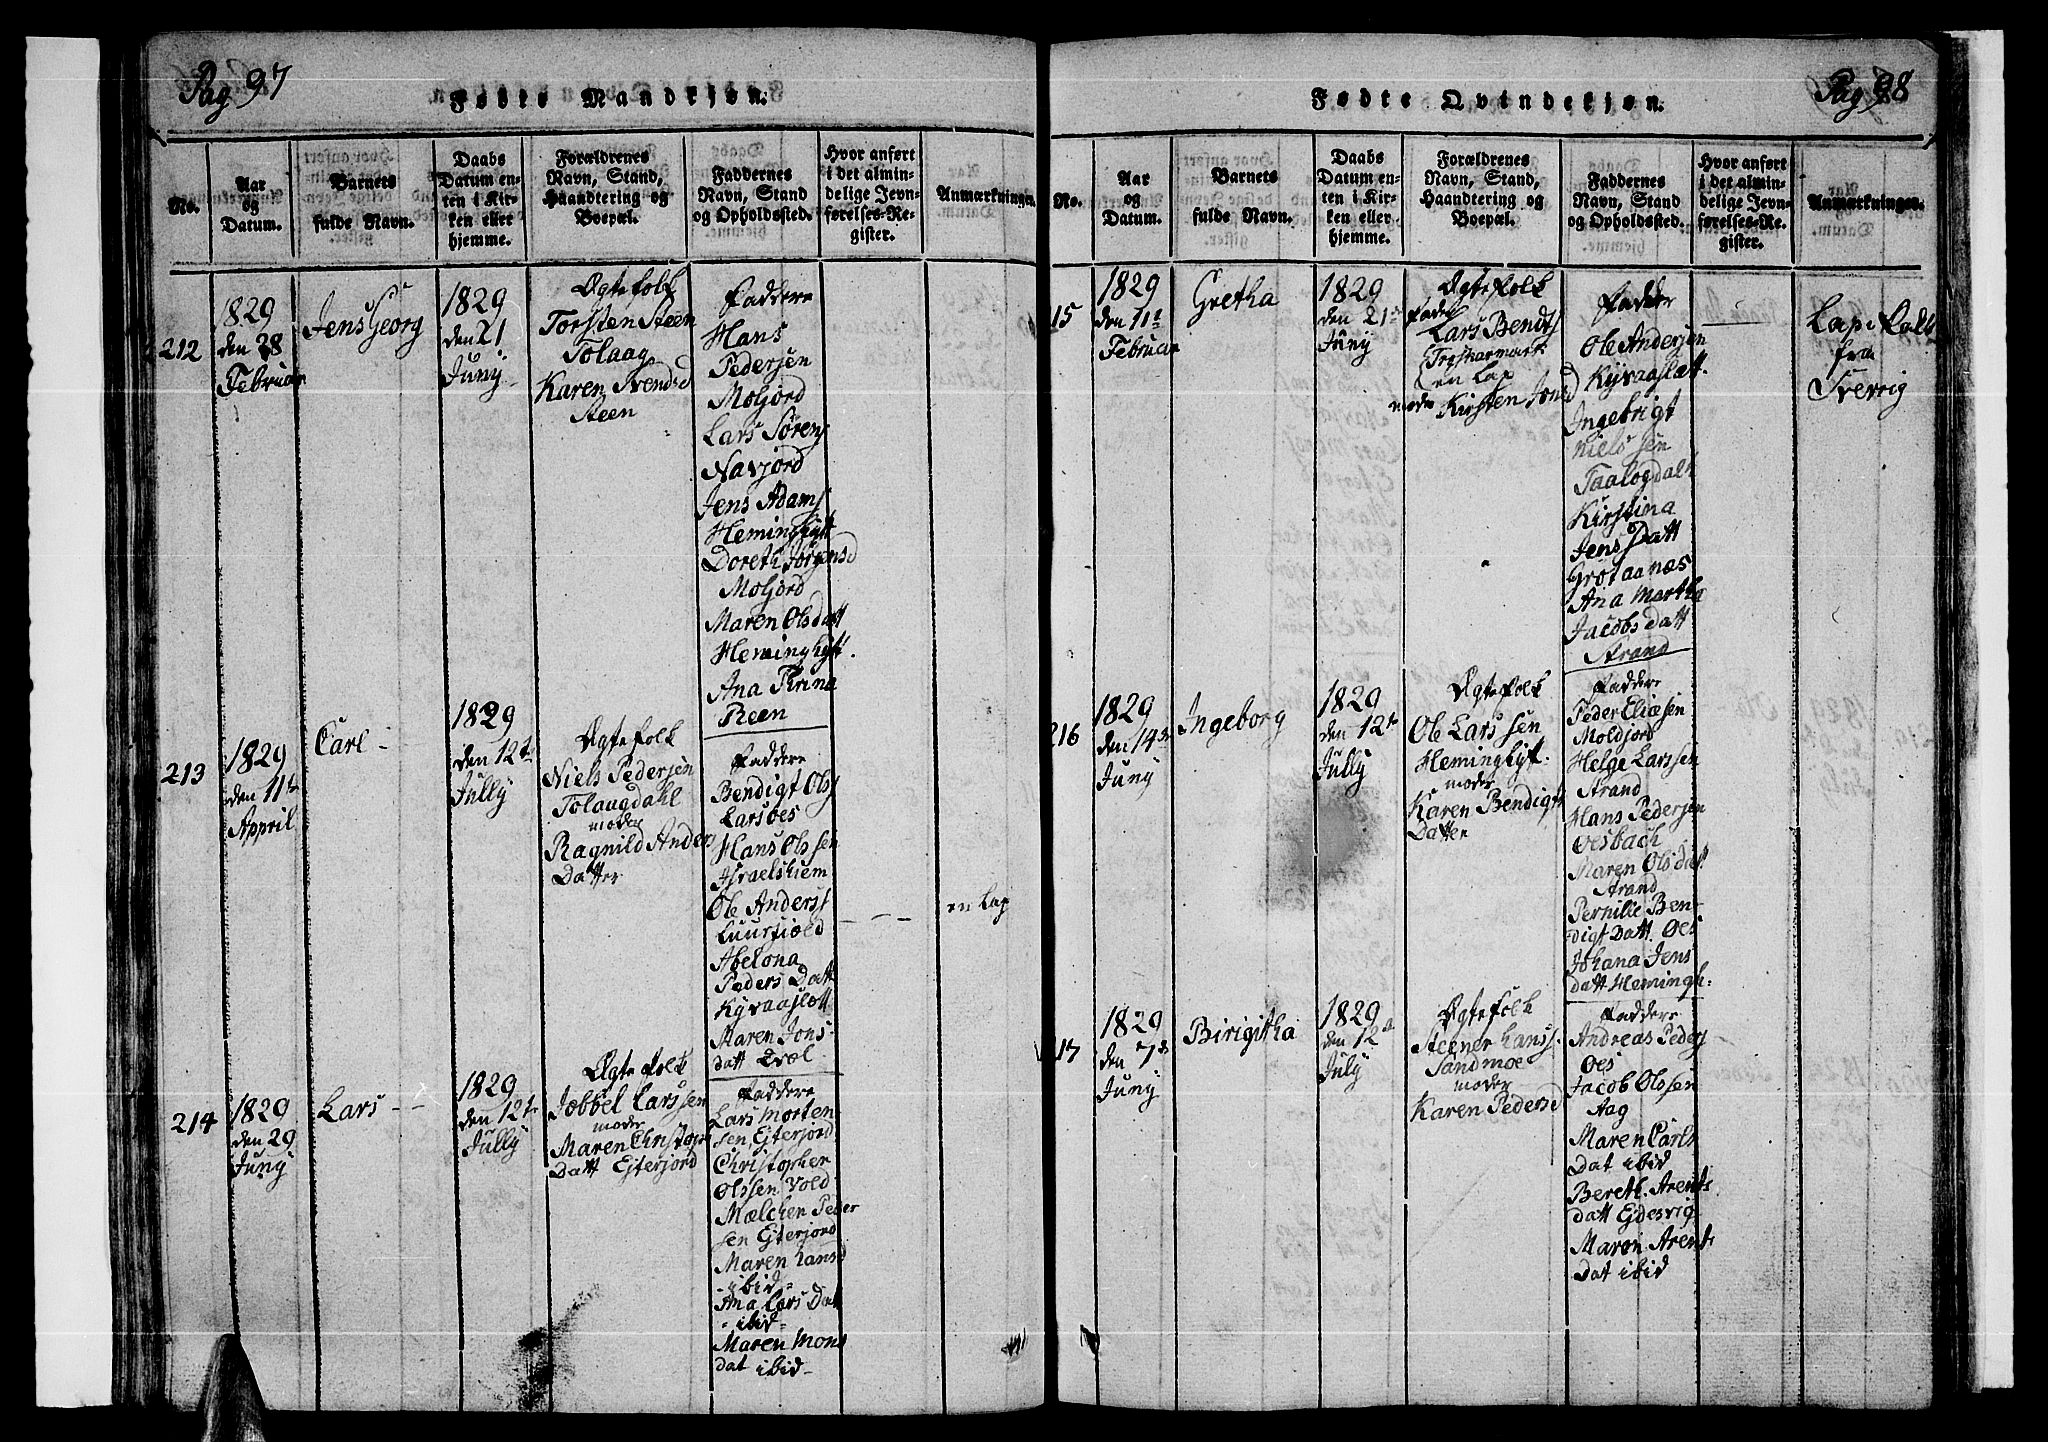 Pag 97
Fødte Mandkjøn.
No.
Aar
og
Datum.
Barnets
fulde Navn.
Daabs
Datum en-
ten i Kir-
ken eller
hjemme.
Forældrenes
Navn, Stand,
Haandtering og
Boepæl.
Faddernes
Navn, Stand
og Opholdssted.
Hvor anført
i det almin-
delige Jevn-
førelses-Re-
gister.
Anmærkninger.
212
1829
den 28
Februar
Jens Georg
1829
den 21
Juny
Ægtefolk
Torsten Steen
Tolaag
Karen Svends d
Steen
Faddere
Hans
Pedersen
Moljord
Lars Sørens
Navjord
Jens Adams
Heminghyt
Doreth Jørgensd
Moljord
Maren Olsdatt
Heminghyt.
Ana Trina
Reen
213
1829
den 11te
Appril
Carl -
1829
den 12te
Jully
Ægtefolk
Niels Pedersen
Tolaagdahl
moder
Ragnild Anders
Datter
Faddere
Bendigt Ols
Larsoes
Hans Olssen
Israelshiem
Ole Anderss
Luurfiold
Abelona
Peders Datt
Kyvaaslett
Maren Jons-
datt Evøl
en Lap
214
1829
den 29
Juny
Lars - -
1829
den 12te
Jully
Ægtefolk
Jobbel Larssen
moder
Maren Christop
Datt Ejterjord
Faddere
Lars Morten
sen Ejterjord
Christopher
Olssen Vold
Mælchen Peder
sen Ejterjord
Maren Hansd
- ibid -
Ana Lars Dat
- ibid -
Maren Mons
dat ibid -
Pag 98
Fødte Qvindekjøn.
No.
Aar
og
Datum.
Barnets
fulde Navn.
Daabs
Datum en-
ten i Kir-
ken eller
hjemme.
Forældrenes
Navn, Stand,
Haandtering og
Boepæl.
Faddernes
Navn, Stand
og Opholdssted.
Hvor anført
i det almin-
delige Jevn-
førelses-Re-
gister.
Anmærkninger.
15
1829
den 11te
Februar
Gretha
1829
den 21de
Juny
Ægtefolk
Fader
Lars Bendts
en Lap
moder Kirsten Jonsd
Faddere
Ole Andersen
Kyvaaslætt.
Ingebrigt
Nielssen
Taalogdahl
Kirstina
Jens Datt
Grotaanæs
Ana Martha
Jacobsdatt
Strand
Lape Folk
fra
Sverrig
216
1829
den 14de
Juny
Ingeborg
1829
den 12te
Jully
Ægtefolk
Ole Larssen
Heminghyt.
moder
Karen Bendigts
Datter
Faddere
Peder Eliæsen
Moldjord
Helge Larssen
Strand
Hans Pedersen
Oesbach
Maren Olsdat
Strand
Pernilie Ben-
digt Datt. Oes
Johana Jens
datt Hemingh.
17
1829
den 7de
Juny
Birigitha
1829
den 12te
July
Ægtefolk
Steener Hanss.
Sandmoe
moder
Karen Pedersd
Faddere
Andreas Peders
Oes
Jacob Olssen
Aag
Maren Carls
Dat ibid
Bereth. Arents
datt Ejdesvig
Maren Arents
Dat ibid